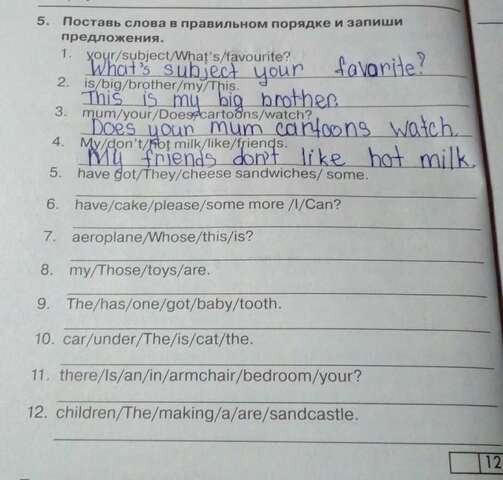 5. Поставь слова в правильном порядке и запиши
предложения.
1. your/subject/What's/favourite?
What's subject your favorite?
2. is/big/brother/my/This.
This is my big brother.
3. mum/your/Does/cartoons/watch?
Does your mum cartoons watch.
4. My/don't/hot milk/like/friends.
My friends don't like hot milk.
5. have got/They/cheese sandwiches/ some.
6. have/cake/please/some more /I/Can?
7. aeroplane/Whose/this/is?
8. my/Those/toys/are.
9. The/has/one/got/baby/tooth.
10. car/under/The/is/cat/the.
11. there/Is/an/in/armchair/bedroom/your?
12. children/The/making/a/are/sandcastle.
12